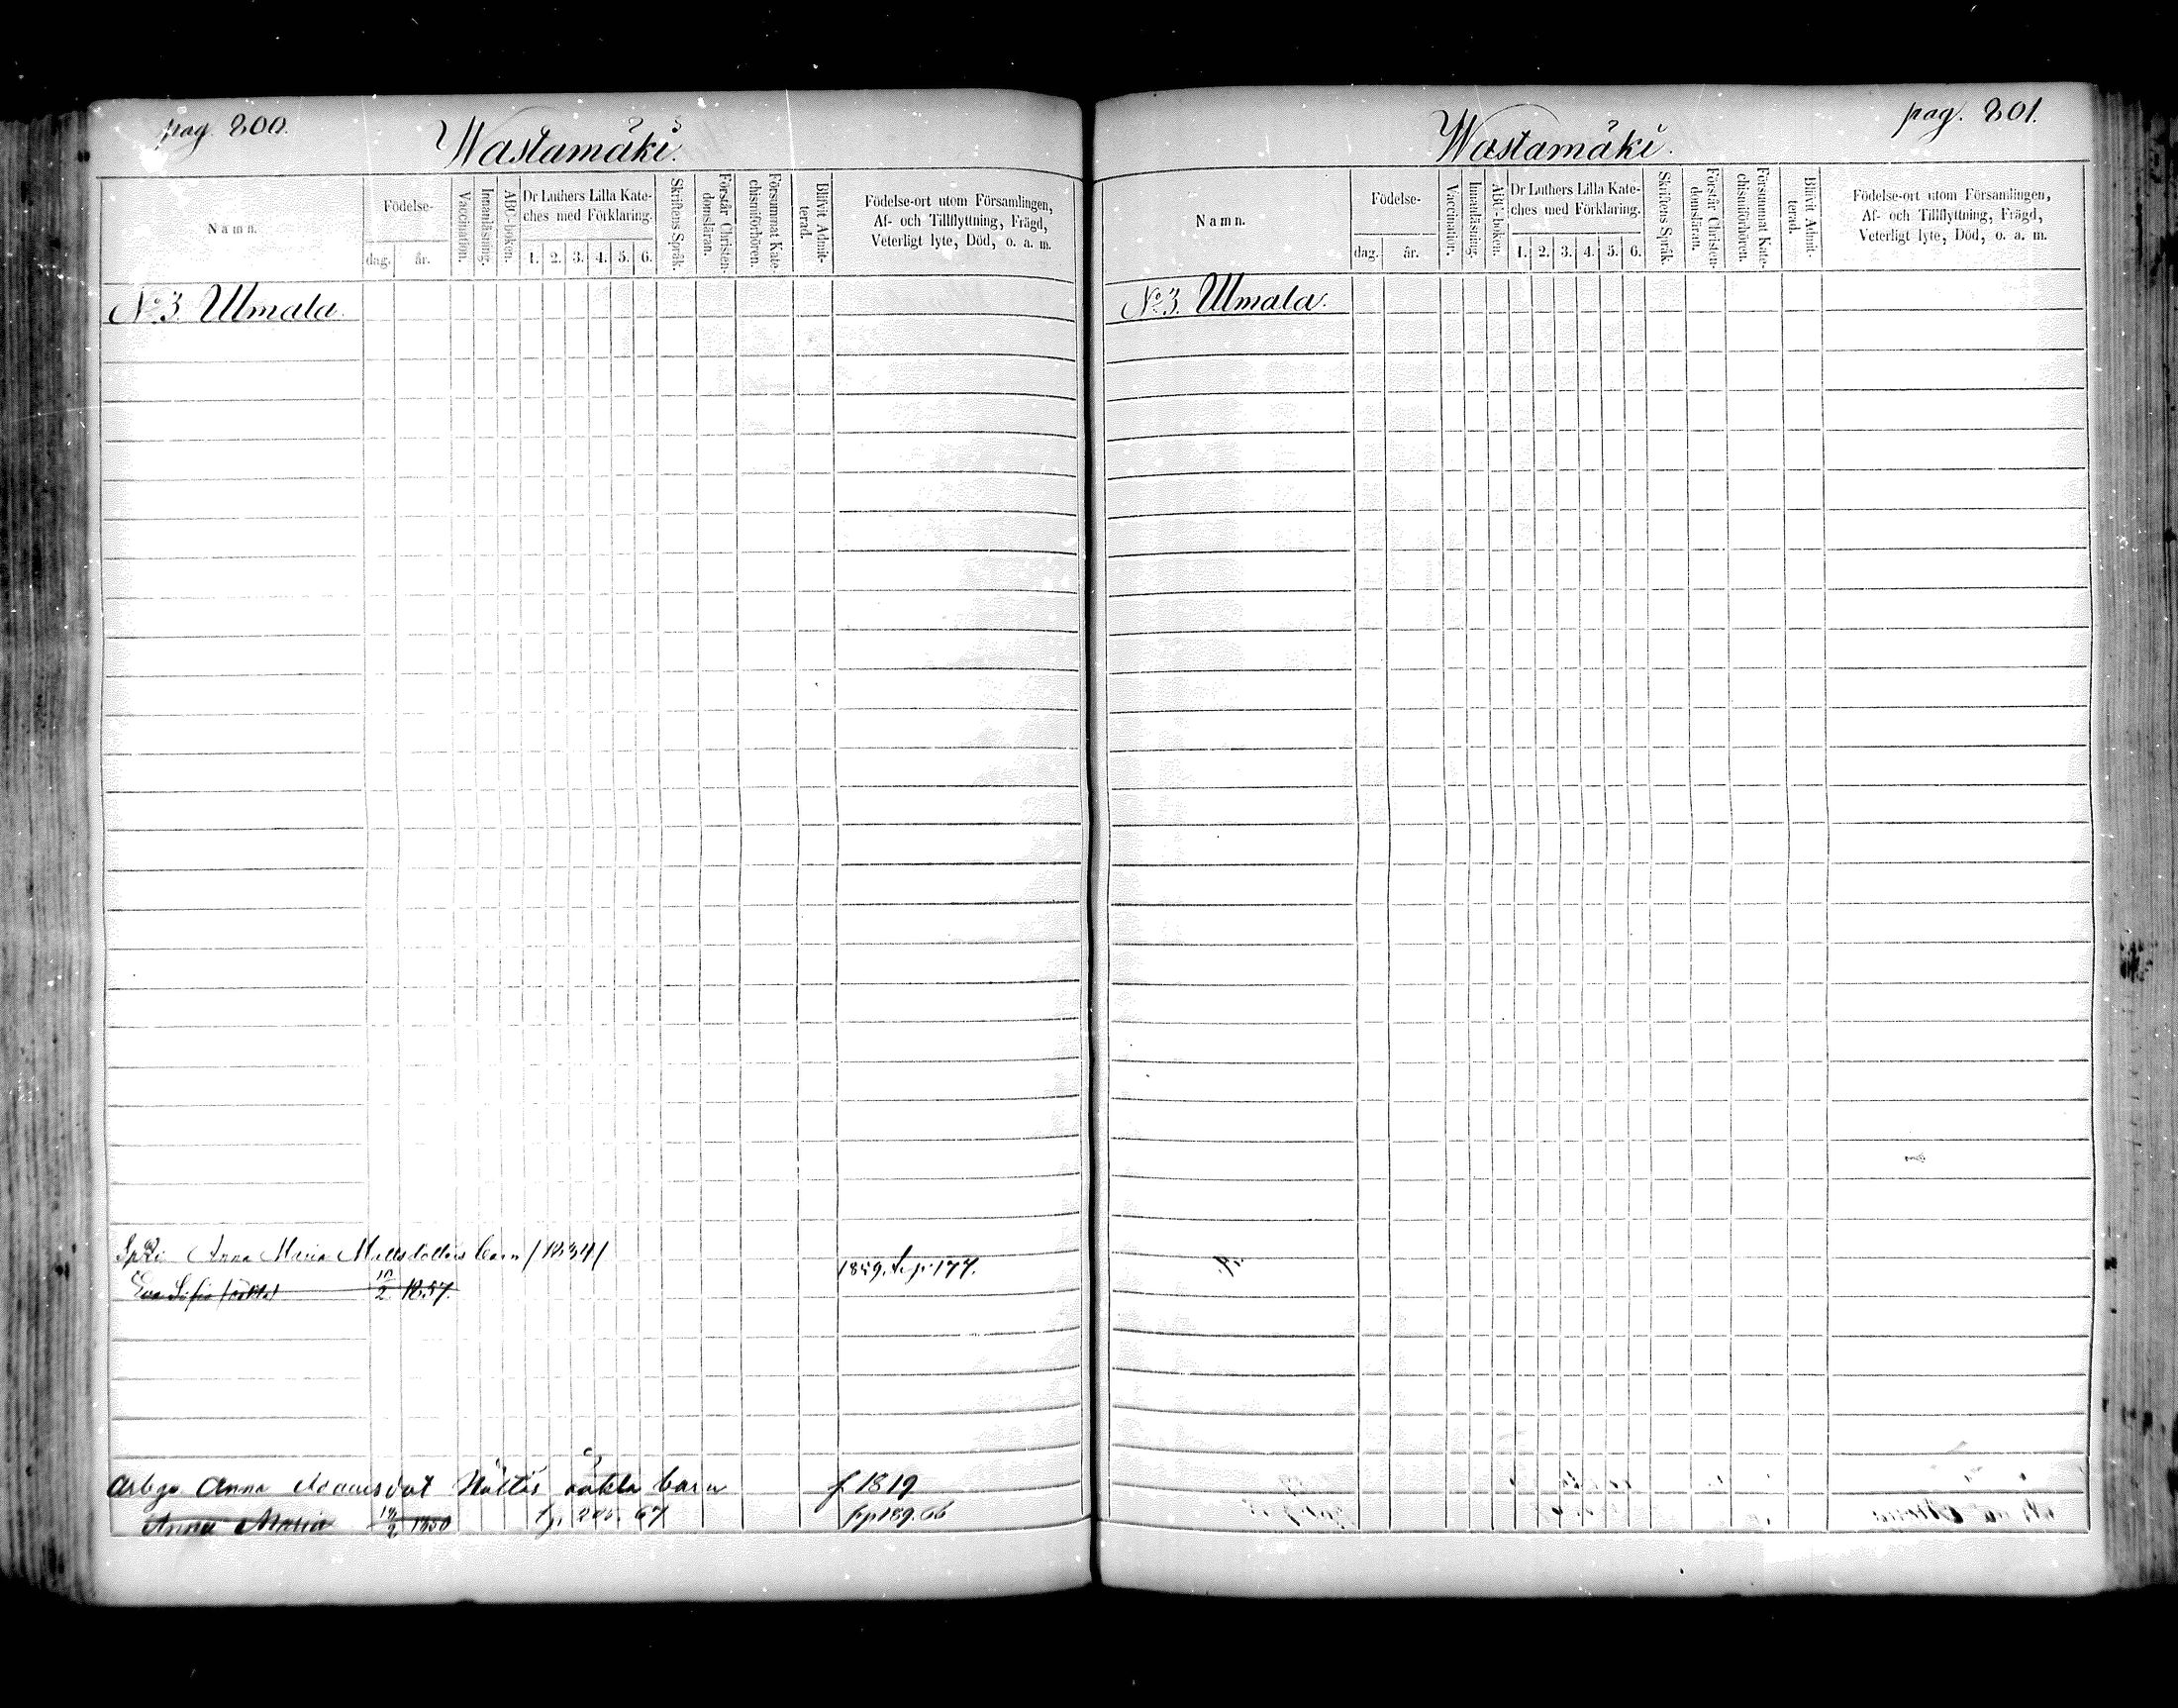 pag. 200.
Wastamäki.
Namn.
Födelse-
dag.
år.
Vaccination.
Innanläsning.
ABC-boken.
Dr Luthers Lilla Kate-
ches med Förklaring.
1. 2. 3. 4. 5. 6.
Skriftens Språk.
Förstår Christen-
domsläran.
Försummat Kate-
chismiförhören.
Blifvit Admit-
terad.
Födelse-ort utom Församlingen,
Af- och Tillflyttning, Frägd,
Veterligt lyte, Död, o. a. m.
No 3. Ulmala.
Anna Maria Mattsdotters barn /1834/
Eva Sofia 10/2 1857. 1859. 177.
Anna Adamsdot oäkta barn f 1819
Anna Maria 1850 67 fp 189. 66
pag. 201.
Wastamäki.
Namn.
Födelse-
dag.
år.
Vaccination.
Innanläsning.
ABC-boken.
Dr Luthers Lilla Kate-
ches med Förklaring.
1. 2. 3. 4. 5. 6.
Skriftens Språk.
Förstår Christen-
domsläran.
Försummat Kate-
chismiförhören.
Blifvit Admit-
terad.
Födelse-ort utom Församlingen,
Af- och Tillflyttning, Frägd,
Veterligt lyte, Död, o. a. m.
No 3. Ulmala.